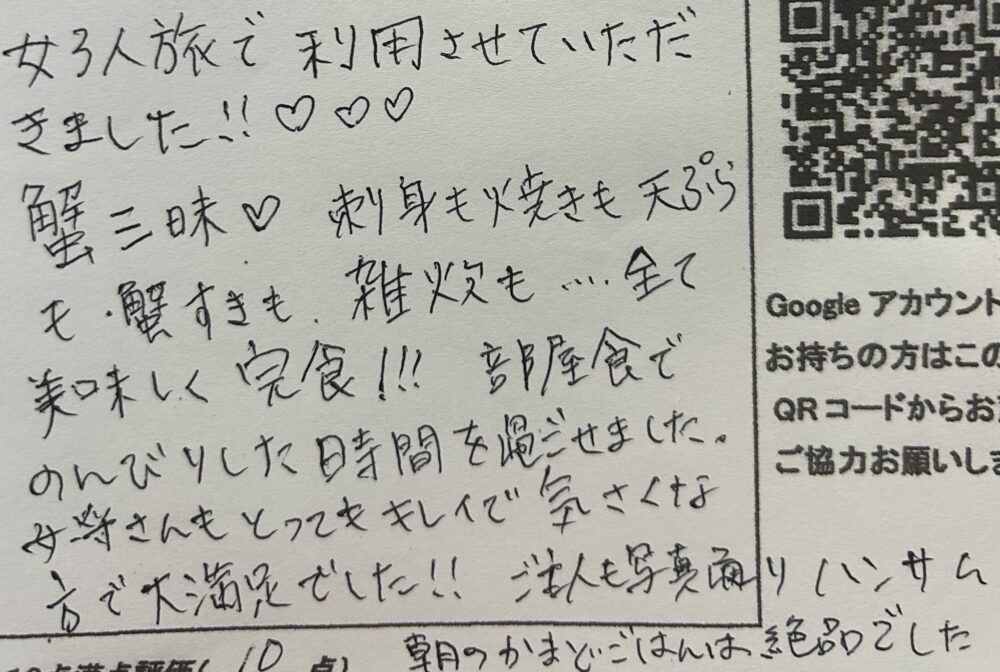 女3人旅で 利用させていただ
きました!! ♡♡♡
蟹三昧♡ 刺身も焼きも天ぷら
も・蟹すきも、雑炊も…全て
美味しく完食!!! 部屋食で
のんびりした時間を過ごせました。
女将さんもとってもキレイで気さくな
方で大満足でした!! ご主人も写真通りハンサム
朝のかまどごはんは絶品でした
点満点評価( 10 点)
Google アカウント
お持ちの方はこの
QRコードからお
ご協力お願いしま